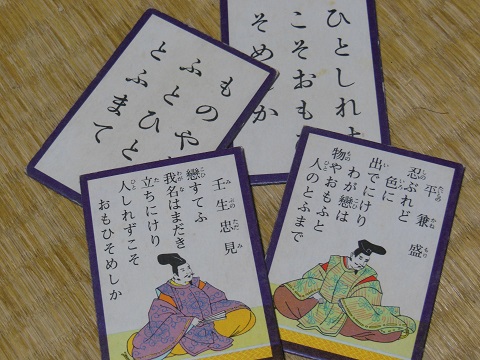 ものや
ふとひと
とふまて
ひとしれ
こそおも
そめしか
平兼盛
忍ぶれど
色に
出でにけり
わが戀は
物やおもふと
人のとふまで
壬生忠見
戀すてふ
我名はまだき
立ちにけり
人しれずこそ
おもひそめしか